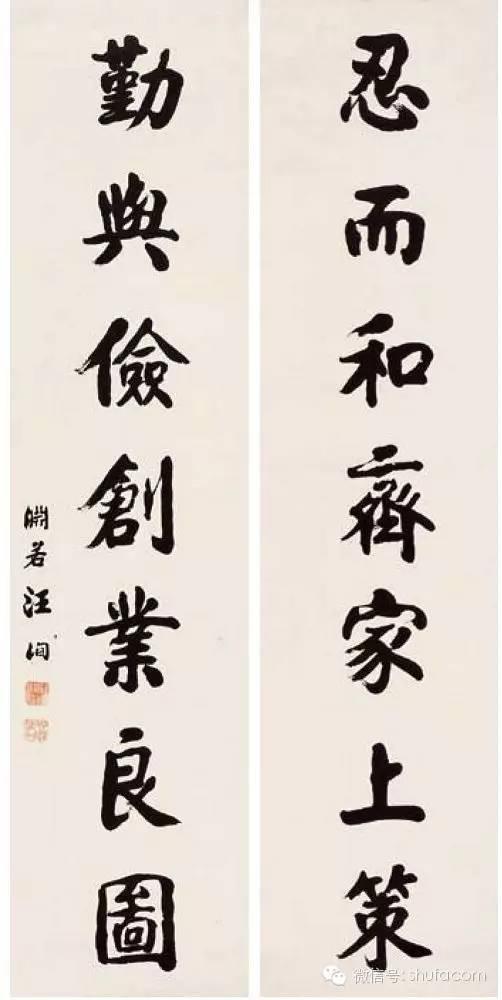 忍而和齊家上策
勤與儉創業良圖
淵若汪洵
微信号: shufacom